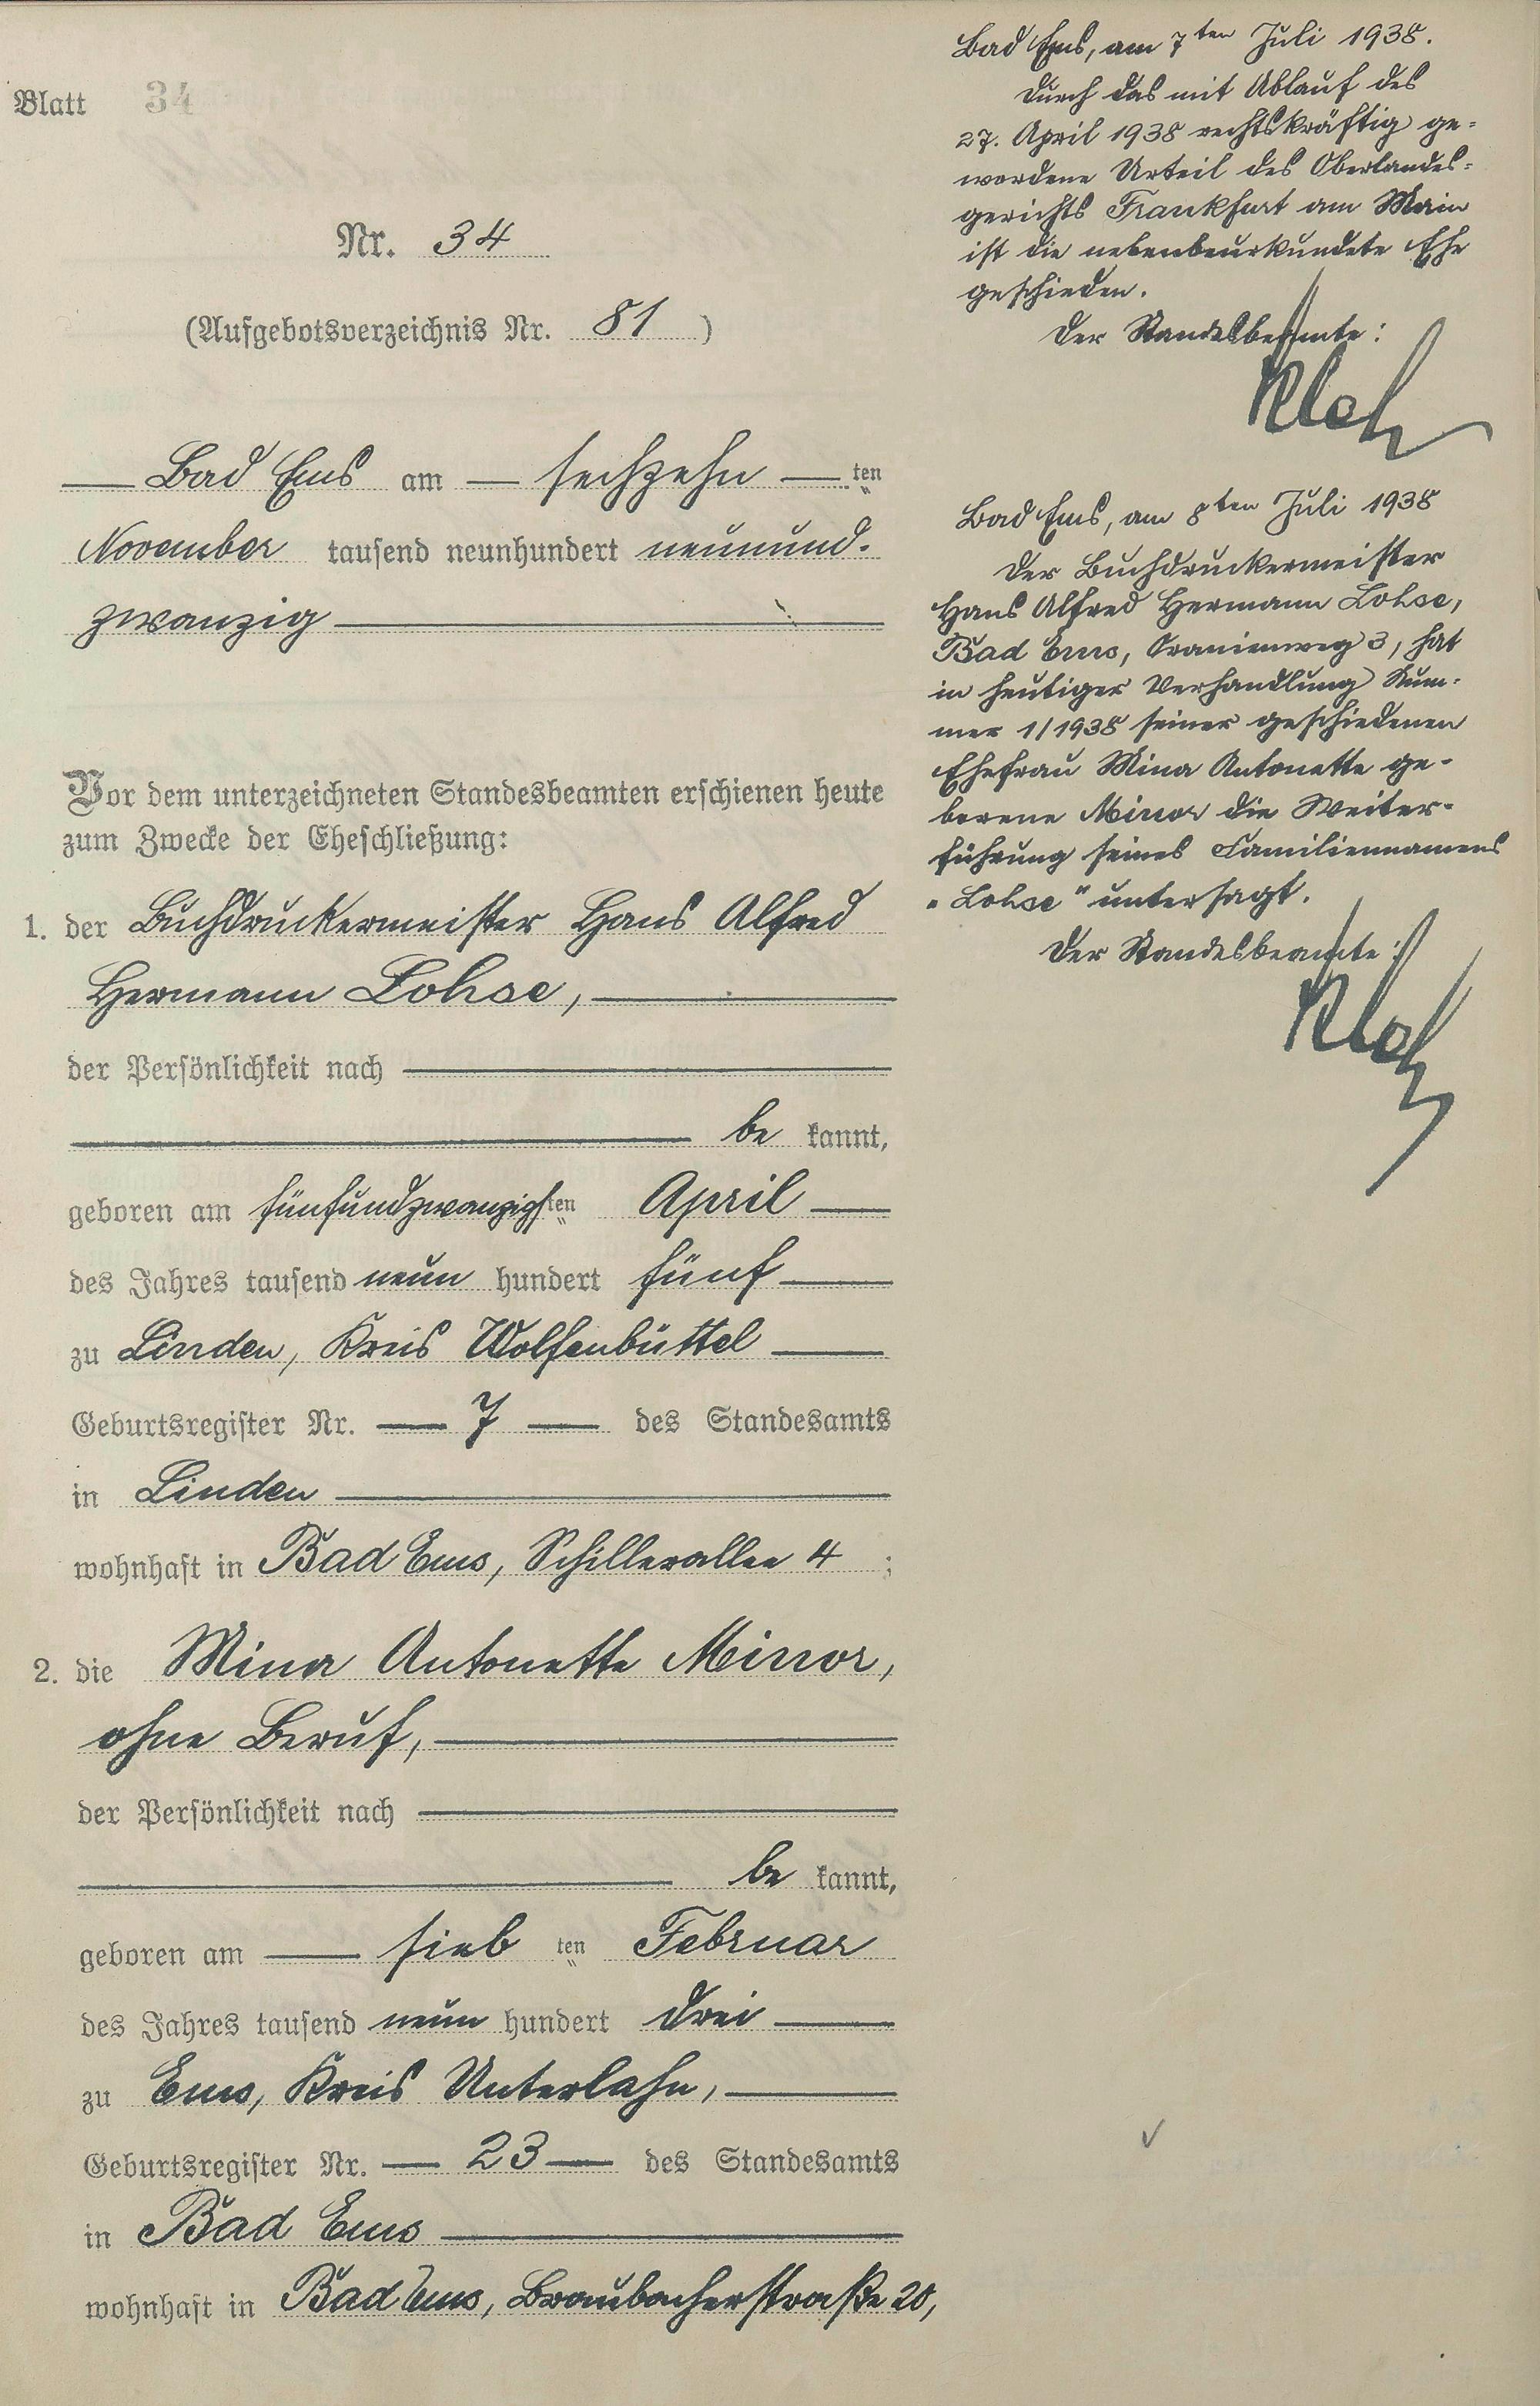 Blatt 34
Nr. 34
(Aufgebotsverzeichnis Nr. 81)
Bad Ems am — sechzehn — ten
November tausend neunhundert neunund-
zwanzig
Vor dem unterzeichneten Standesbeamten erschienen heute
zum Zwecke der Eheschließung:
1. der Buchdruckermeister Hans Alfred
Hermann Lohse,
der Persönlichkeit nach
be kannt,
geboren am fünfundzwanzigsten April
des Jahres tausend neun hundert fünf
zu Linden, Kreis Wolfenbüttel
Geburtsregister Nr. — 7 — des Standesamts
in Linden
wohnhaft in Bad Ems, Schillerallee 4 ;
2. die Mina Antonette Minor,
ohne Beruf,
der Persönlichkeit nach
be kannt,
geboren am — sieb ten Februar
des Jahres tausend neun hundert drei
zu Ems, Kreis Unterlahn,
Geburtsregister Nr. — 23 — des Standesamts
in Bad Ems
wohnhaft in Bad Ems, Braubacherstraße 20,
Bad Ems, am 7ten Juli 1938.
Durch das mit Ablauf des
27. April 1938 rechtskräftig ge-
wordene Urteil des Oberlandes-
gerichts Frankfurt am Main
ist die nebenbeurkundete Ehe
geschieden.
Der Standesbeamte:
Bad Ems, am 8ten Juli 1938
Der Buchdruckermeister
Hans Alfred Hermann Lohse,
Bad Ems, Oranienweg 3, hat
in heutiger Verhandlung Num-
mer 1/1938 seiner geschiedenen
Ehefrau Mina Antonette ge-
borene Minor die Weiter-
führung seines Familiennamens
"Lohse" untersagt.
Der Standesbeamte: